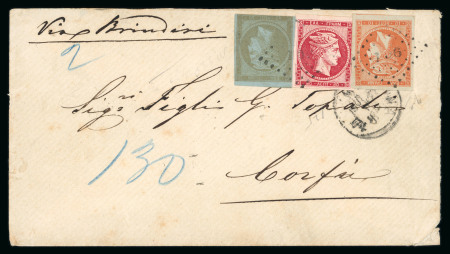 Via Brindisi
2
Sig.ri Figli G. Topali
130
Corfù